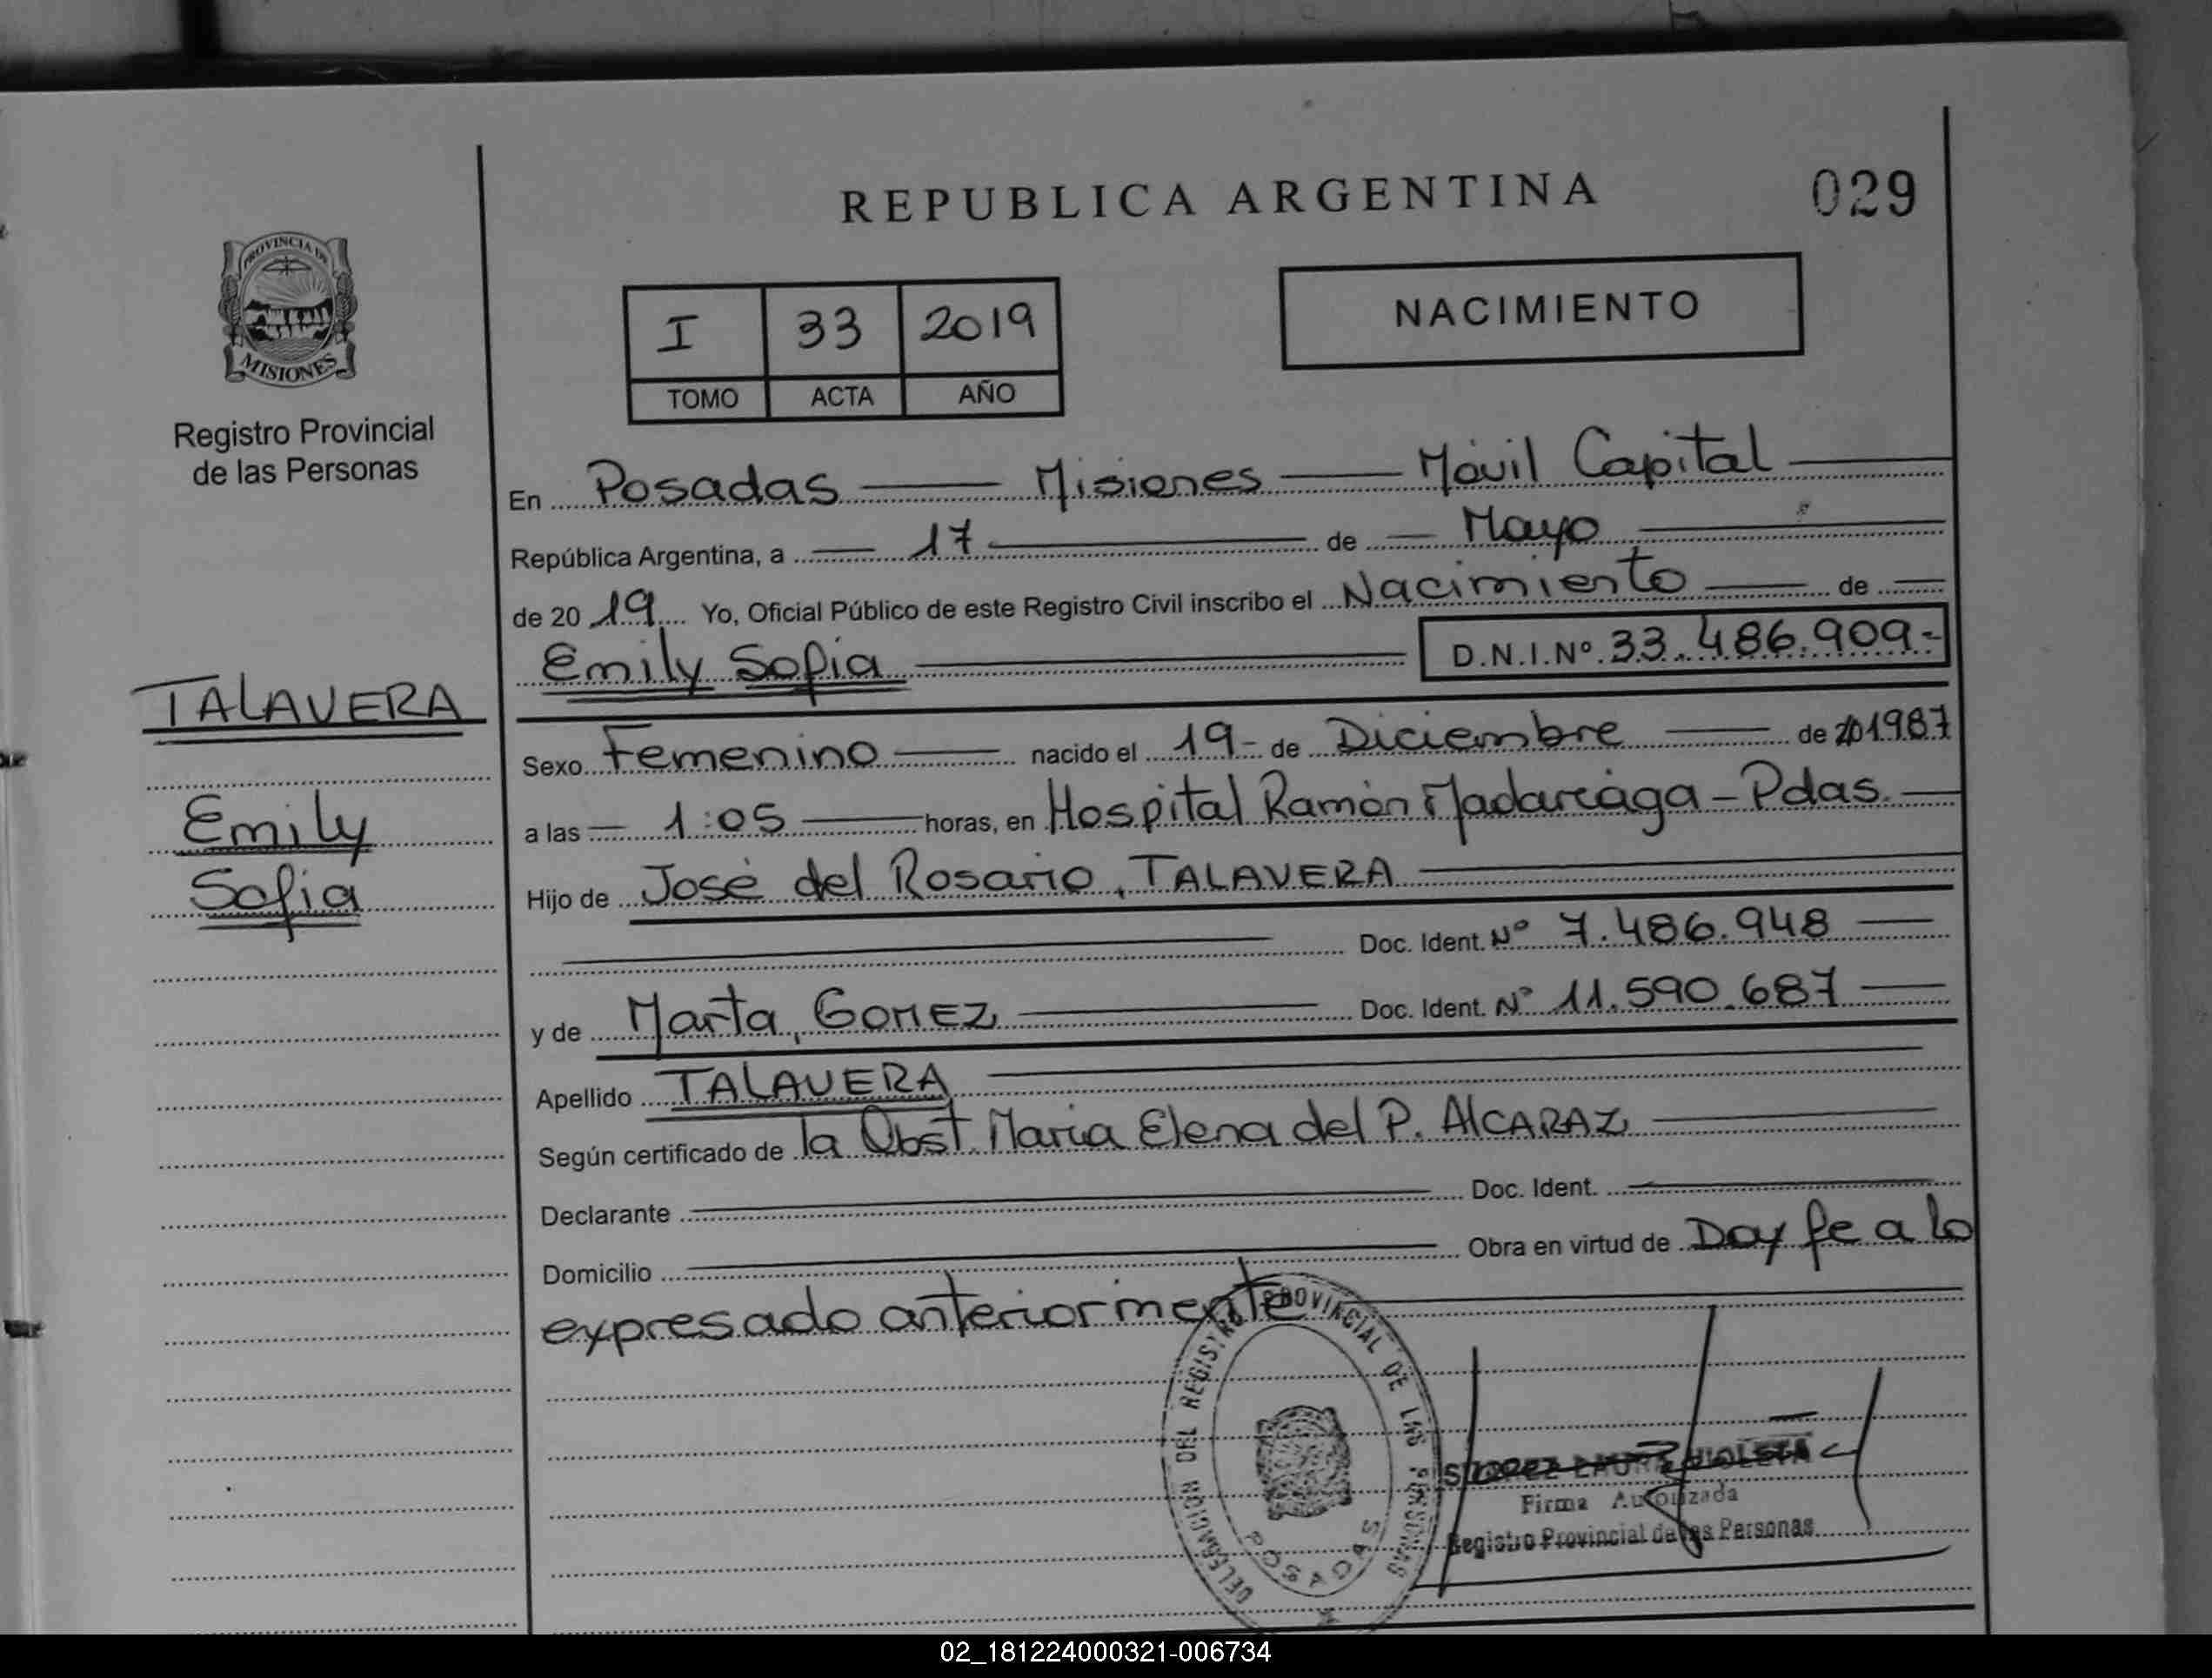 REPUBLICA ARGENTINA
029
PROVINCIA DE
MISIONES
Registro Provincial
de las Personas
I 33 2019
TOMO ACTA AÑO
NACIMIENTO
En Posadas Misiones Móvil Capital
República Argentina, a 17 de Mayo
de 20 19 Yo, Oficial Público de este Registro Civil inscribo el Nacimiento de
Emily Sofia D.N.I.Nº 33.486.909-
TALAVERA
Emily
Sofia
Sexo Femenino nacido el 19- de Diciembre de 1987
a las 1:05 horas, en Hospital Ramón Madareaga - Pdas.
Hijo de José del Rosario, TALAVERA
Doc. Ident. Nº 7.486.948
y de Marta, GOMEZ Doc. Ident. Nº 11.590.687
Apellido TALAVERA
Según certificado de la Obst. Maria Elena del P. AlCARAZ
Declarante Doc. Ident.
Domicilio Obra en virtud de Doy fe a lo
expresado anteriormente
DELEGACION DEL REGISTRO PROVINCIAL DE LAS PERSONAS
POSADAS
LOPEZ LAURA VIOLETA
Firma Autorizada
Registro Provincial de las Personas
02_181224000321-006734